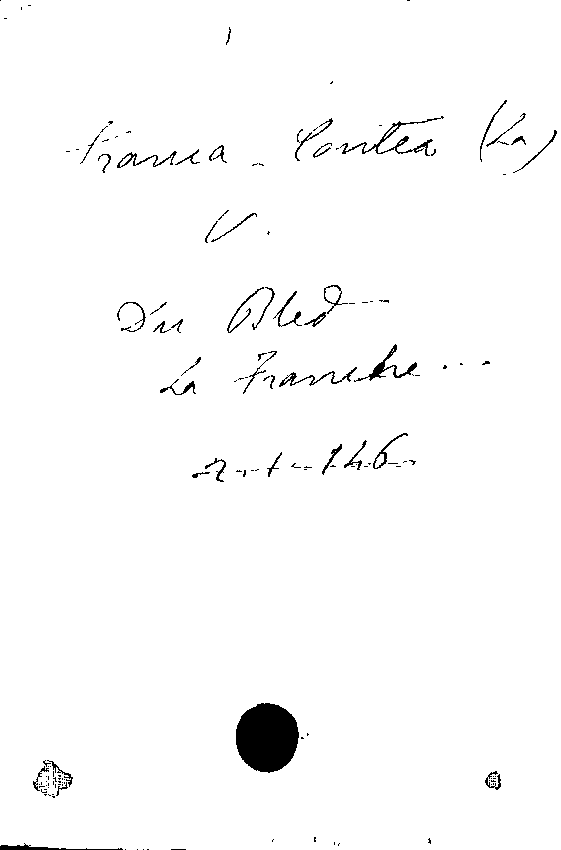 Franca - Contea (La)
V.
Du Bled
La Franche ...